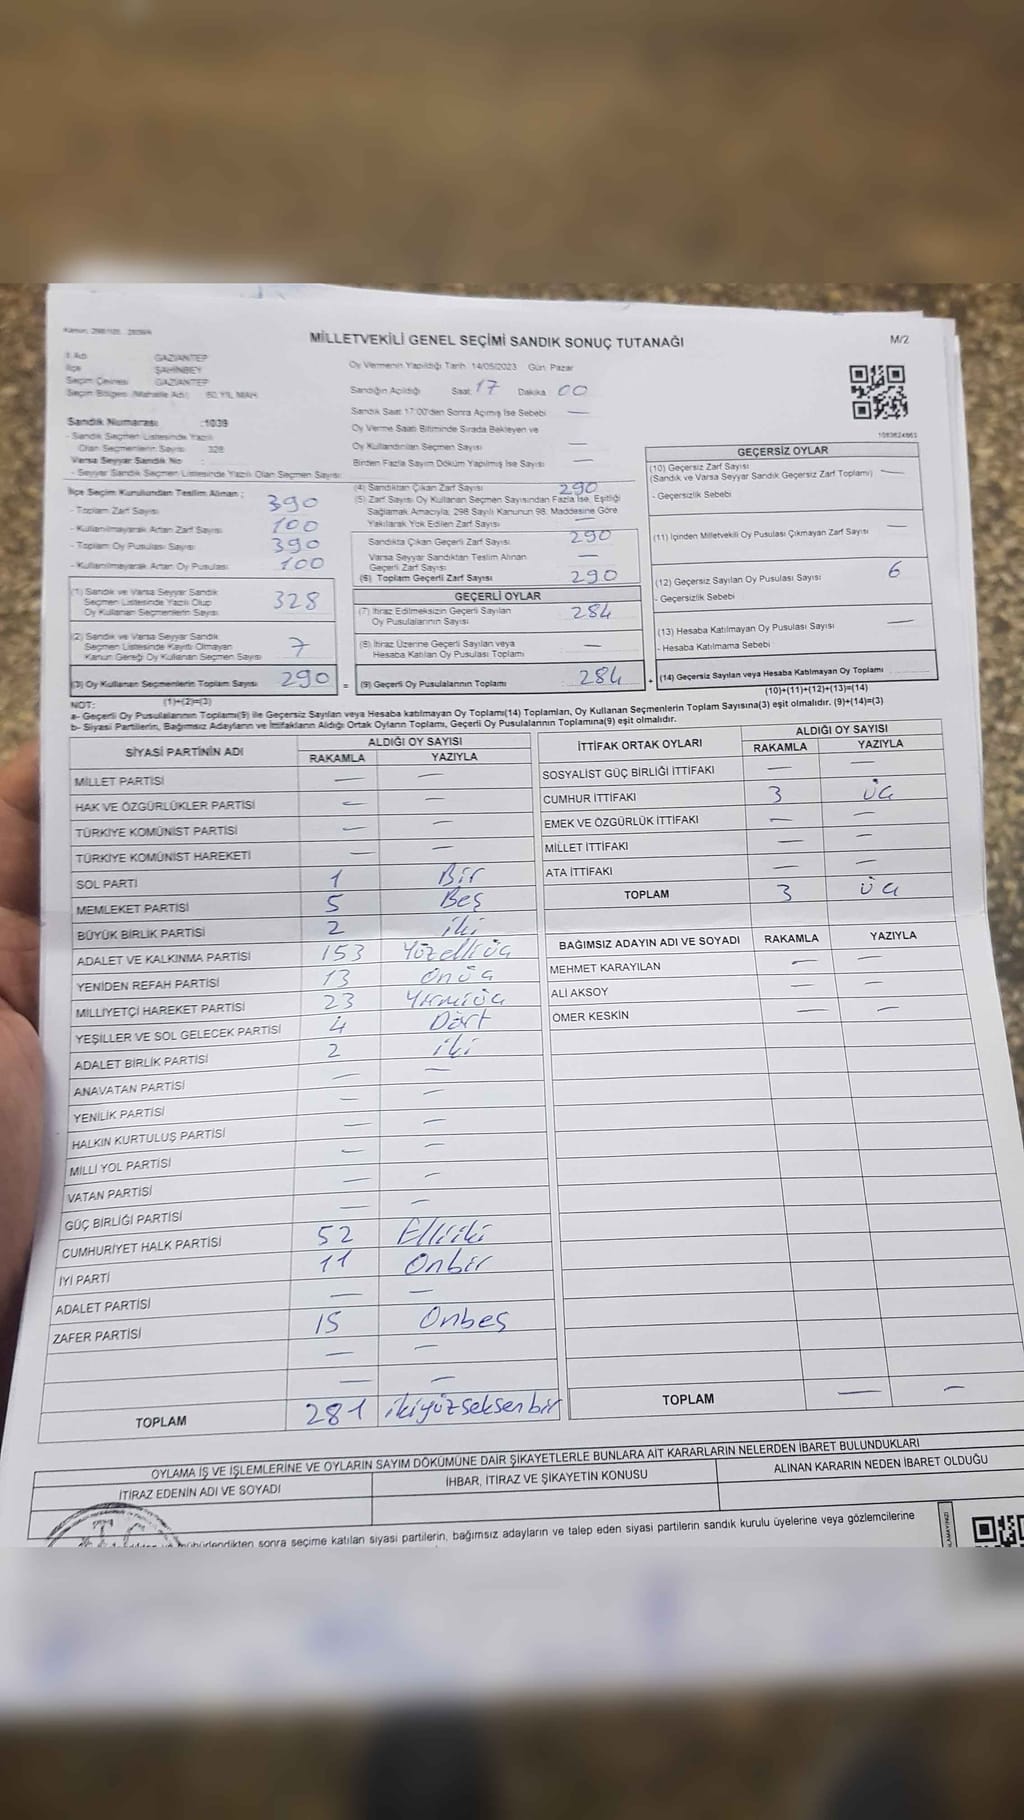 MİLLETVEKİLİ GENEL SEÇİMİ SANDIK SONUÇ TUTANAĞI
M/2
İl Adı GAZİANTEP
İlçe ŞAHİNBEY
Seçim Çevresi GAZİANTEP
Seçim Bölgesi (Mahalle Adı) 60.YIL MAH.
Sandık Numarası :1039
- Sandık Seçmen Listesinde Yazılı
Olan Seçmenlerin Sayısı 328
Varsa Seyyar Sandık No :
- Seyyar Sandık Seçmen Listesinde Yazılı Olan Seçmen Sayısı:
Oy Vermenin Yapıldığı Tarih 14/05/2023 Gün: Pazar
Sandığın Açıldığı Saat 17 Dakika 00
Sandık Saat 17:00'den Sonra Açımış İse Sebebi —
Oy Verme Saati Bitiminde Sırada Bekleyen ve
Oy Kullandırılan Seçmen Sayısı —
Birden Fazla Sayım Döküm Yapılmış İse Sayısı —
1083624863
İlçe Seçim Kurulundan Teslim Alınan ;
- Toplam Zarf Sayısı 390
- Kullanılmayarak Artan Zarf Sayısı 100
- Toplam Oy Pusulası Sayısı 390
- Kullanılmayarak Artan Oy Pusulası 100
(1) Sandık ve Varsa Seyyar Sandık
Seçmen Listesinde Yazılı Olup
Oy Kullanan Seçmenlerin Sayısı 328
(2) Sandık ve Varsa Seyyar Sandık
Seçmen Listesinde Kayıtlı Olmayan
Kanun Gereği Oy Kullanan Seçmen Sayısı 7
(3) Oy Kullanan Seçmenlerin Toplam Sayısı 290 =
(1)+(2)=(3)
(4) Sandıktan Çıkan Zarf Sayısı 290
(5) Zarf Sayısı Oy Kullanan Seçmen Sayısından Fazla İse, Eşitliği
Sağlamak Amacıyla; 298 Sayılı Kanunun 98. Maddesine Göre
Yakılarak Yok Edilen Zarf Sayısı —
Sandıkta Çıkan Geçerli Zarf Sayısı 290
Varsa Seyyar Sandıktan Teslim Alınan
Geçerli Zarf Sayısı —
(6) Toplam Geçerli Zarf Sayısı 290
GEÇERLİ OYLAR
(7) İtiraz Edilmeksizin Geçerli Sayılan
Oy Pusulalarının Sayısı 284
(8) İtiraz Üzerine Geçerli Sayılan veya
Hesaba Katılan Oy Pusulası Toplamı —
(9) Geçerli Oy Pusulalarının Toplamı 284 +
GEÇERSİZ OYLAR
(10) Geçersiz Zarf Sayısı
(Sandık ve Varsa Seyyar Sandık Geçersiz Zarf Toplamı) —
- Geçersizlik Sebebi
(11) İçinden Milletvekili Oy Pusulası Çıkmayan Zarf Sayısı —
(12) Geçersiz Sayılan Oy Pusulası Sayısı 6
- Geçersizlik Sebebi
(13) Hesaba Katılmayan Oy Pusulası Sayısı —
- Hesaba Katılmama Sebebi
(14) Geçersiz Sayılan veya Hesaba Katılmayan Oy Toplamı
(10)+(11)+(12)+(13)=(14)
NOT:
a- Geçerli Oy Pusulalarının Toplamı(9) ile Geçersiz Sayılan veya Hesaba katılmayan Oy Toplamı(14) Toplamları, Oy Kullanan Seçmenlerin Toplam Sayısına(3) eşit olmalıdır. (9)+(14)=(3)
b- Siyasi Partilerin, Bağımsız Adayların ve İttifakların Aldığı Ortak Oyların Toplamı, Geçerli Oy Pusulalarının Toplamına(9) eşit olmalıdır.
SİYASİ PARTİNİN ADI ALDIĞI OY SAYISI
RAKAMLA YAZIYLA
MİLLET PARTİSİ — —
HAK VE ÖZGÜRLÜKLER PARTİSİ — —
TÜRKİYE KOMÜNİST PARTİSİ — —
TÜRKİYE KOMÜNİST HAREKETİ — —
SOL PARTİ 1 Bir
MEMLEKET PARTİSİ 5 Beş
BÜYÜK BİRLİK PARTİSİ 2 iki
ADALET VE KALKINMA PARTİSİ 153 Yüzelliüç
YENİDEN REFAH PARTİSİ 13 Onüç
MİLLİYETÇİ HAREKET PARTİSİ 23 Yirmiüç
YEŞİLLER VE SOL GELECEK PARTİSİ 4 Dört
ADALET BİRLİK PARTİSİ 2 iki
ANAVATAN PARTİSİ — —
YENİLİK PARTİSİ — —
HALKIN KURTULUŞ PARTİSİ — —
MİLLİ YOL PARTİSİ — —
VATAN PARTİSİ — —
GÜÇ BİRLİĞİ PARTİSİ — —
CUMHURİYET HALK PARTİSİ 52 Elliiki
İYİ PARTİ 11 Onbir
ADALET PARTİSİ — —
ZAFER PARTİSİ 15 Onbeş
— —
— —
TOPLAM 281 ikiyüzseksenbir
İTTİFAK ORTAK OYLARI ALDIĞI OY SAYISI
RAKAMLA YAZIYLA
SOSYALİST GÜÇ BİRLİĞİ İTTİFAKI — —
CUMHUR İTTİFAKI 3 üç
EMEK VE ÖZGÜRLÜK İTTİFAKI — —
MİLLET İTTİFAKI — —
ATA İTTİFAKI — —
TOPLAM 3 üç
BAĞIMSIZ ADAYIN ADI VE SOYADI RAKAMLA YAZIYLA
MEHMET KARAYILAN — —
ALİ AKSOY — —
ÖMER KESKİN — —
TOPLAM — —
OYLAMA İŞ VE İŞLEMLERİNE VE OYLARIN SAYIM DÖKÜMÜNE DAİR ŞİKAYETLERLE BUNLARA AİT KARARLARIN NELERDEN İBARET BULUNDUKLARI
İTİRAZ EDENİN ADI VE SOYADI İHBAR, İTİRAZ VE ŞİKAYETİN KONUSU ALINAN KARARIN NEDEN İBARET OLDUĞU
mühürlendikten sonra seçime katılan siyasi partilerin, bağımsız adayların ve talep eden siyasi partilerin sandık kurulu üyelerine veya gözlemcilerine